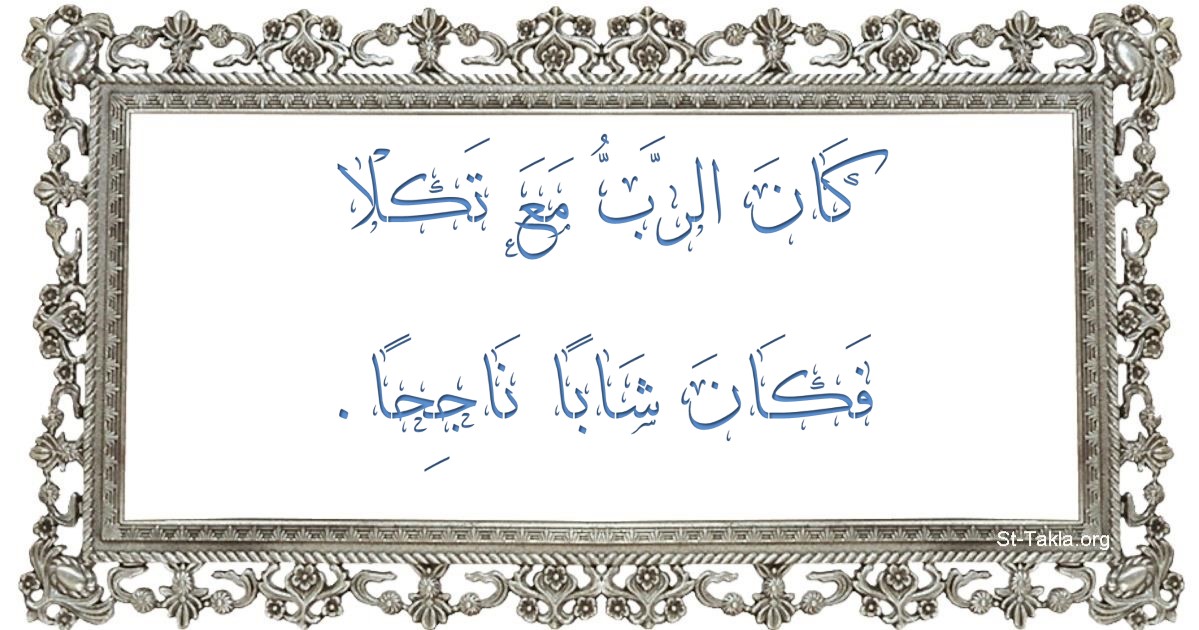 كَانَ الرَّبُّ مَعَ تَكْلَا
فَكَانَ شَابًا نَاجِحًا.
St-Takla.org